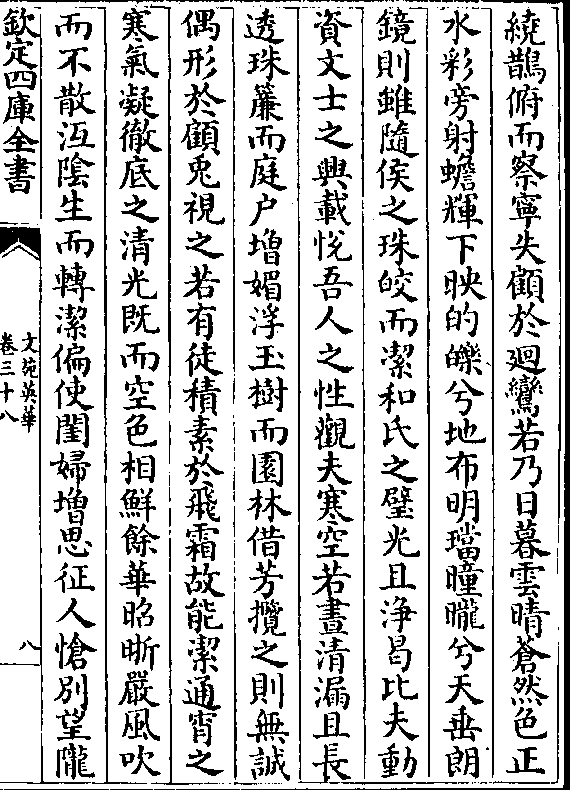 繞鵲俯而察寧失顧於廻鸞若乃日暮雲晴蒼然色正
水彩旁射蟾輝下映的皪兮地布明璫曈曨兮天垂朗
鏡則雖隨侯之珠皎而潔和氏之璧光且浄曷比夫動
資文士之興載悅吾人之性觀夫寒空若晝清漏且長
透珠簾而庭户増媚浮玉樹而園林借芳攬之則無誠
偶形於顧兎視之若有徒積素於飛霜故能潔通宵之
寒氣凝徹底之清光既而空色相鮮餘華昭晣嚴風吹
而不散沍陰生而轉潔偏使閨婦増思征人愴别望隴
欽定四庫全書
文苑英華
卷三十八
八